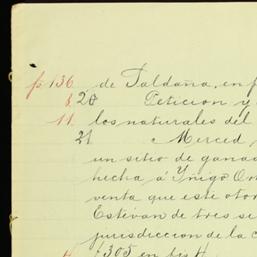 p. 136 de Saldaña, en f
§ 20 Peticion y
11. los naturales del
21 Merced
un sitio de ganad
hecha á Yñigo Or
venta que este otor
Estévan de tres se
jurisdiccion de la c
305 en